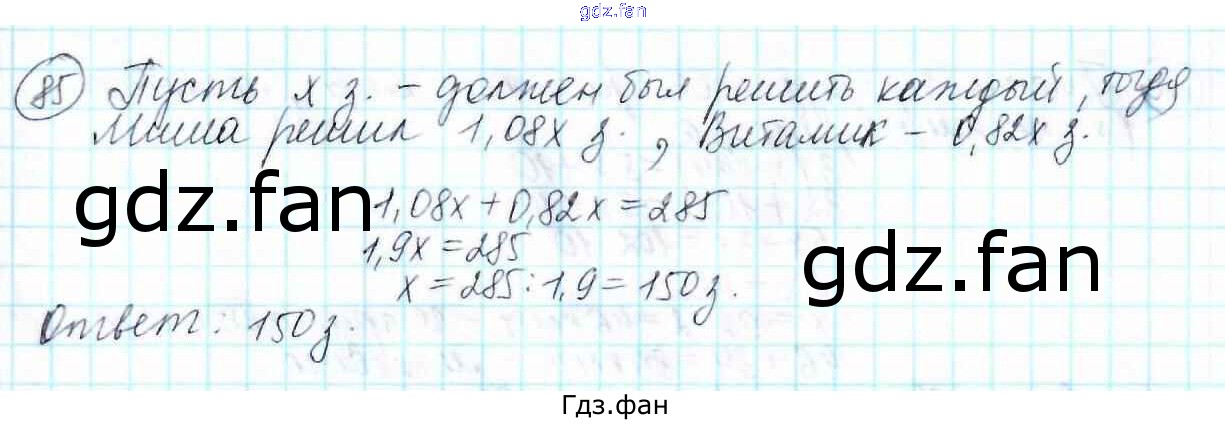 gdz.fan
85 Пусть x з. – должен был решить каждый, тогда
Миша решил 1,08x з., Виталик – 0,82x з.
gdz.fan
1,08x + 0,82x = 285
1,9x = 285
gdz.fan
x = 285 : 1,9 = 150 з.
Ответ: 150 з.
Гдз.фан